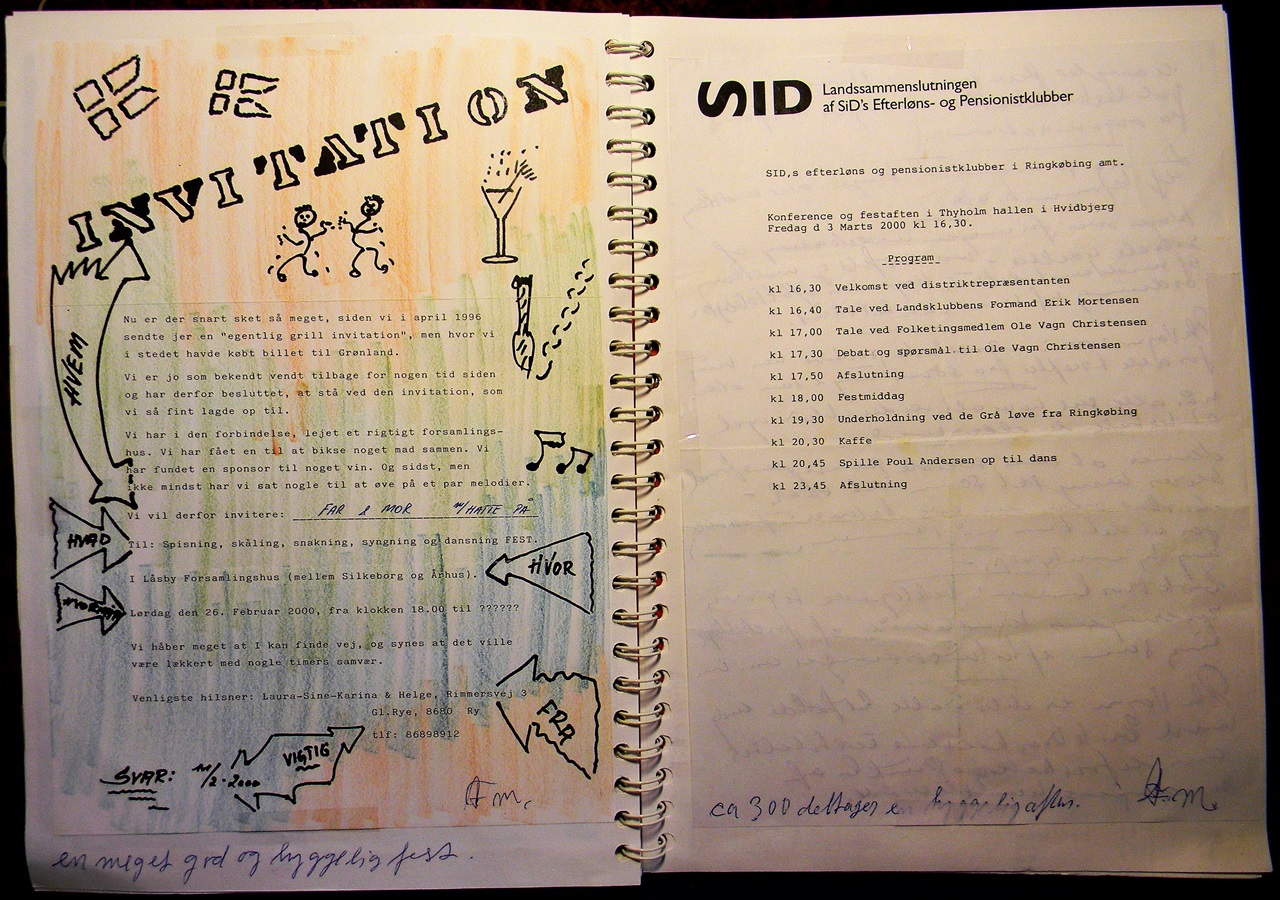 INVITATION
HVEM
Nu er der snart sket så meget, siden vi i april 1996
sendte jer en "egentlig grill invitation", men hvor vi
i stedet havde købt billet til Grønland.
Vi er jo som bekendt vendt tilbage for nogen tid siden
og har derfor besluttet, at stå ved den invitation, som
vi så fint lagde op til.
Vi har i den forbindelse, lejet et rigtigt forsamlings-
hus. Vi har fået en til at bikse noget mad sammen. Vi
har fundet en sponsor til noget vin. Og sidst, men
ikke mindst har vi sat nogle til at øve på et par melodier.
Vi vil derfor invitere: FAR & MOR M/HATTE PÅ
HVAD
Til: Spisning, skåling, snakning, syngning og dansning FEST.
HVOR
I Låsby Forsamlingshus (mellem Silkeborg og Århus).
Lørdag den 26. Februar 2000, fra klokken 18.00 til ??????
Vi håber meget at I kan finde vej, og synes at det ville
være lækkert med nogle timers samvær.
Venligste hilsner: Laura-Sine-Karina & Helge, Rimmersvej 3
Gl.Rye, 8680 Ry
tlf: 86898912
FRA
VIGTIG
SVAR: /2-2000
en meget god og hyggelig fest.
SID Landssammenslutningen
af SiD's Efterløns- og Pensionistklubber
SID,s efterløns og pensionistklubber i Ringkøbing amt.
Konference og festaften i Thyholm hallen i Hvidbjerg
Fredag d 3 Marts 2000 kl 16,30.
Program
kl 16,30 Velkomst ved distriktrepræsentanten
kl 16,40 Tale ved Landsklubbens Formand Erik Mortensen
kl 17,00 Tale ved Folketingsmedlem Ole Vagn Christensen
kl 17,30 Debat og spørsmål til Ole Vagn Christensen
kl 17,50 Afslutning
kl 18,00 Festmiddag
kl 19,30 Underholdning ved de Grå løve fra Ringkøbing
kl 20,30 Kaffe
kl 20,45 Spille Poul Andersen op til dans
kl 23,45 Afslutning
ca 300 deltager en hyggelig aften.